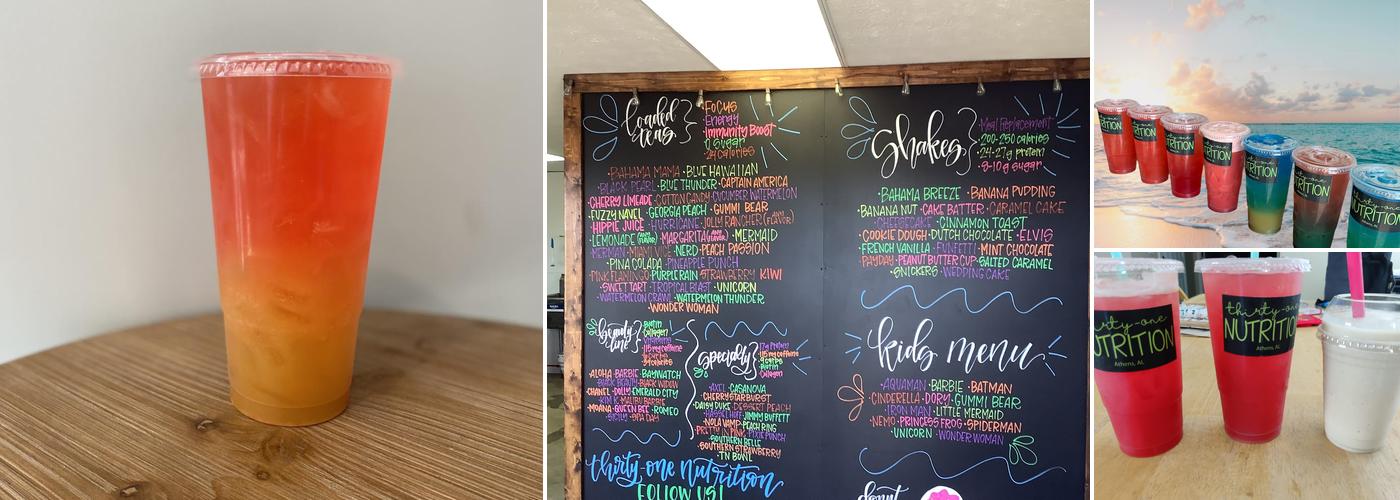 loaded teas
Focus
Energy
Immunity Boost
0 Sugar
24 calories
BAHAMA MAMA · BLUE HAWAIIAN
BLACK PEARL · BLUE THUNDER · CAPTAIN AMERICA
CHERRY LIMEADE · COTTON CANDY · CUCUMBER WATERMELON
FUZZY NAVEL · GEORGIA PEACH · GUMMI BEAR
HIPPIE JUICE · HURRICANE · JOLLY RANCHER (FLAVOR)
LEMONADE · MARGARITA · MERMAID
MERMAN · MIAMI VICE · NERD · PEACH PASSION
PINA COLADA · PINEAPPLE PUNCH
PINK FLAMINGO · PURPLE RAIN · STRAWBERRY KIWI
SWEET TART · TROPICAL BLAST · UNICORN
WATERMELON CRAWL · WATERMELON THUNDER
WONDER WOMAN
beauty line
Biotin
Collagen
115mg caffeine
ALOHA · BARBIE · BAYWATCH
BLACK BEAUTY · BLACK WIDOW
CHANEL · DOLLY · EMERALD CITY
KIM K · MALIBU BARBIE
MOANA · QUEEN BEE · ROMEO
SICILY · SPA DAY
specialty
17g Protein
115mg caffeine
Biotin
Collagen
AXEL · CASANOVA
CHERRY STARBURST
DAISY DUKE · DESSERT PEACH
HASSELHOFF · JIMMY BUFFETT
NOLA VAMP · PEACH RING
PRETTY IN PINK · PIXIE PUNCH
SOUTHERN BELLE
SOUTHERN STRAWBERRY
TN BOWL
thirty-one nutrition
FOLLOW US!
Shakes
Meal Replacement
200-250 calories
24-27g protein
8-10g sugar
BAHAMA BREEZE · BANANA PUDDING
BANANA NUT · CAKE BATTER · CARAMEL CAKE
CHEESECAKE · CINNAMON TOAST
COOKIE DOUGH · DUTCH CHOCOLATE · ELVIS
FRENCH VANILLA · FUNFETTI · MINT CHOCOLATE
PAYDAY · PEANUT BUTTER CUP · SALTED CARAMEL
SNICKERS · WEDDING CAKE
kids menu
AQUAMAN · BARBIE · BATMAN
CINDERELLA · DORY · GUMMI BEAR
IRON MAN · LITTLE MERMAID
NEMO · PRINCESS FROG · SPIDERMAN
UNICORN · WONDER WOMAN
donut
NUTRITION
NUTRITION
NUTRITION
NUTRITION
NUTRITION
NUTRITION
NUTRITION
thirty-one
NUTRITION
Athens, AL
thirty-one
NUTRITIO
Athens, AL